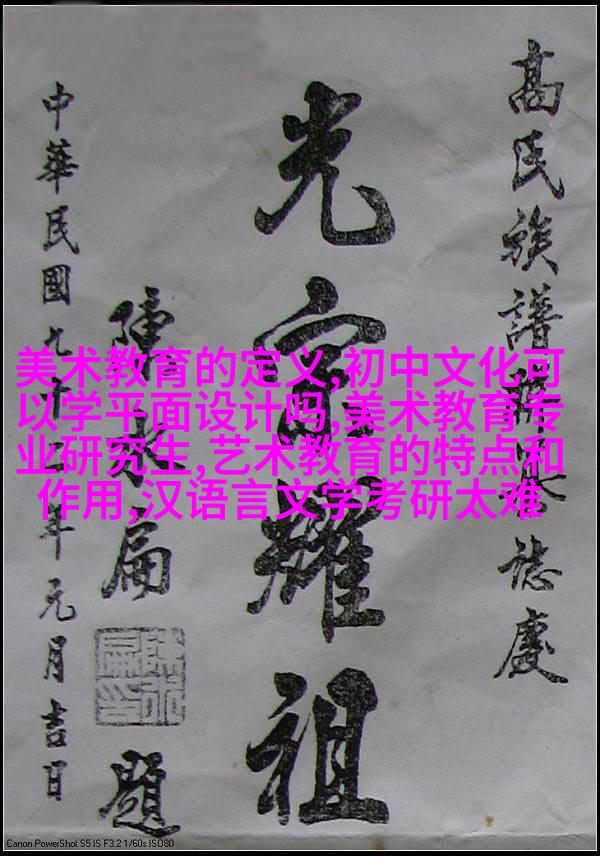 高氏族譜誌慶
光宗耀祖
陳水扁
陳水扁印
題
中華民國九十年元月吉日
美术教育的定义,初中文化可
以学平面设计吗,美术教育专
业研究生,艺术教育的特点和
作用,汉语言文学考研太难
Canon PowerShot S5 IS F3.2 1/60s ISO80